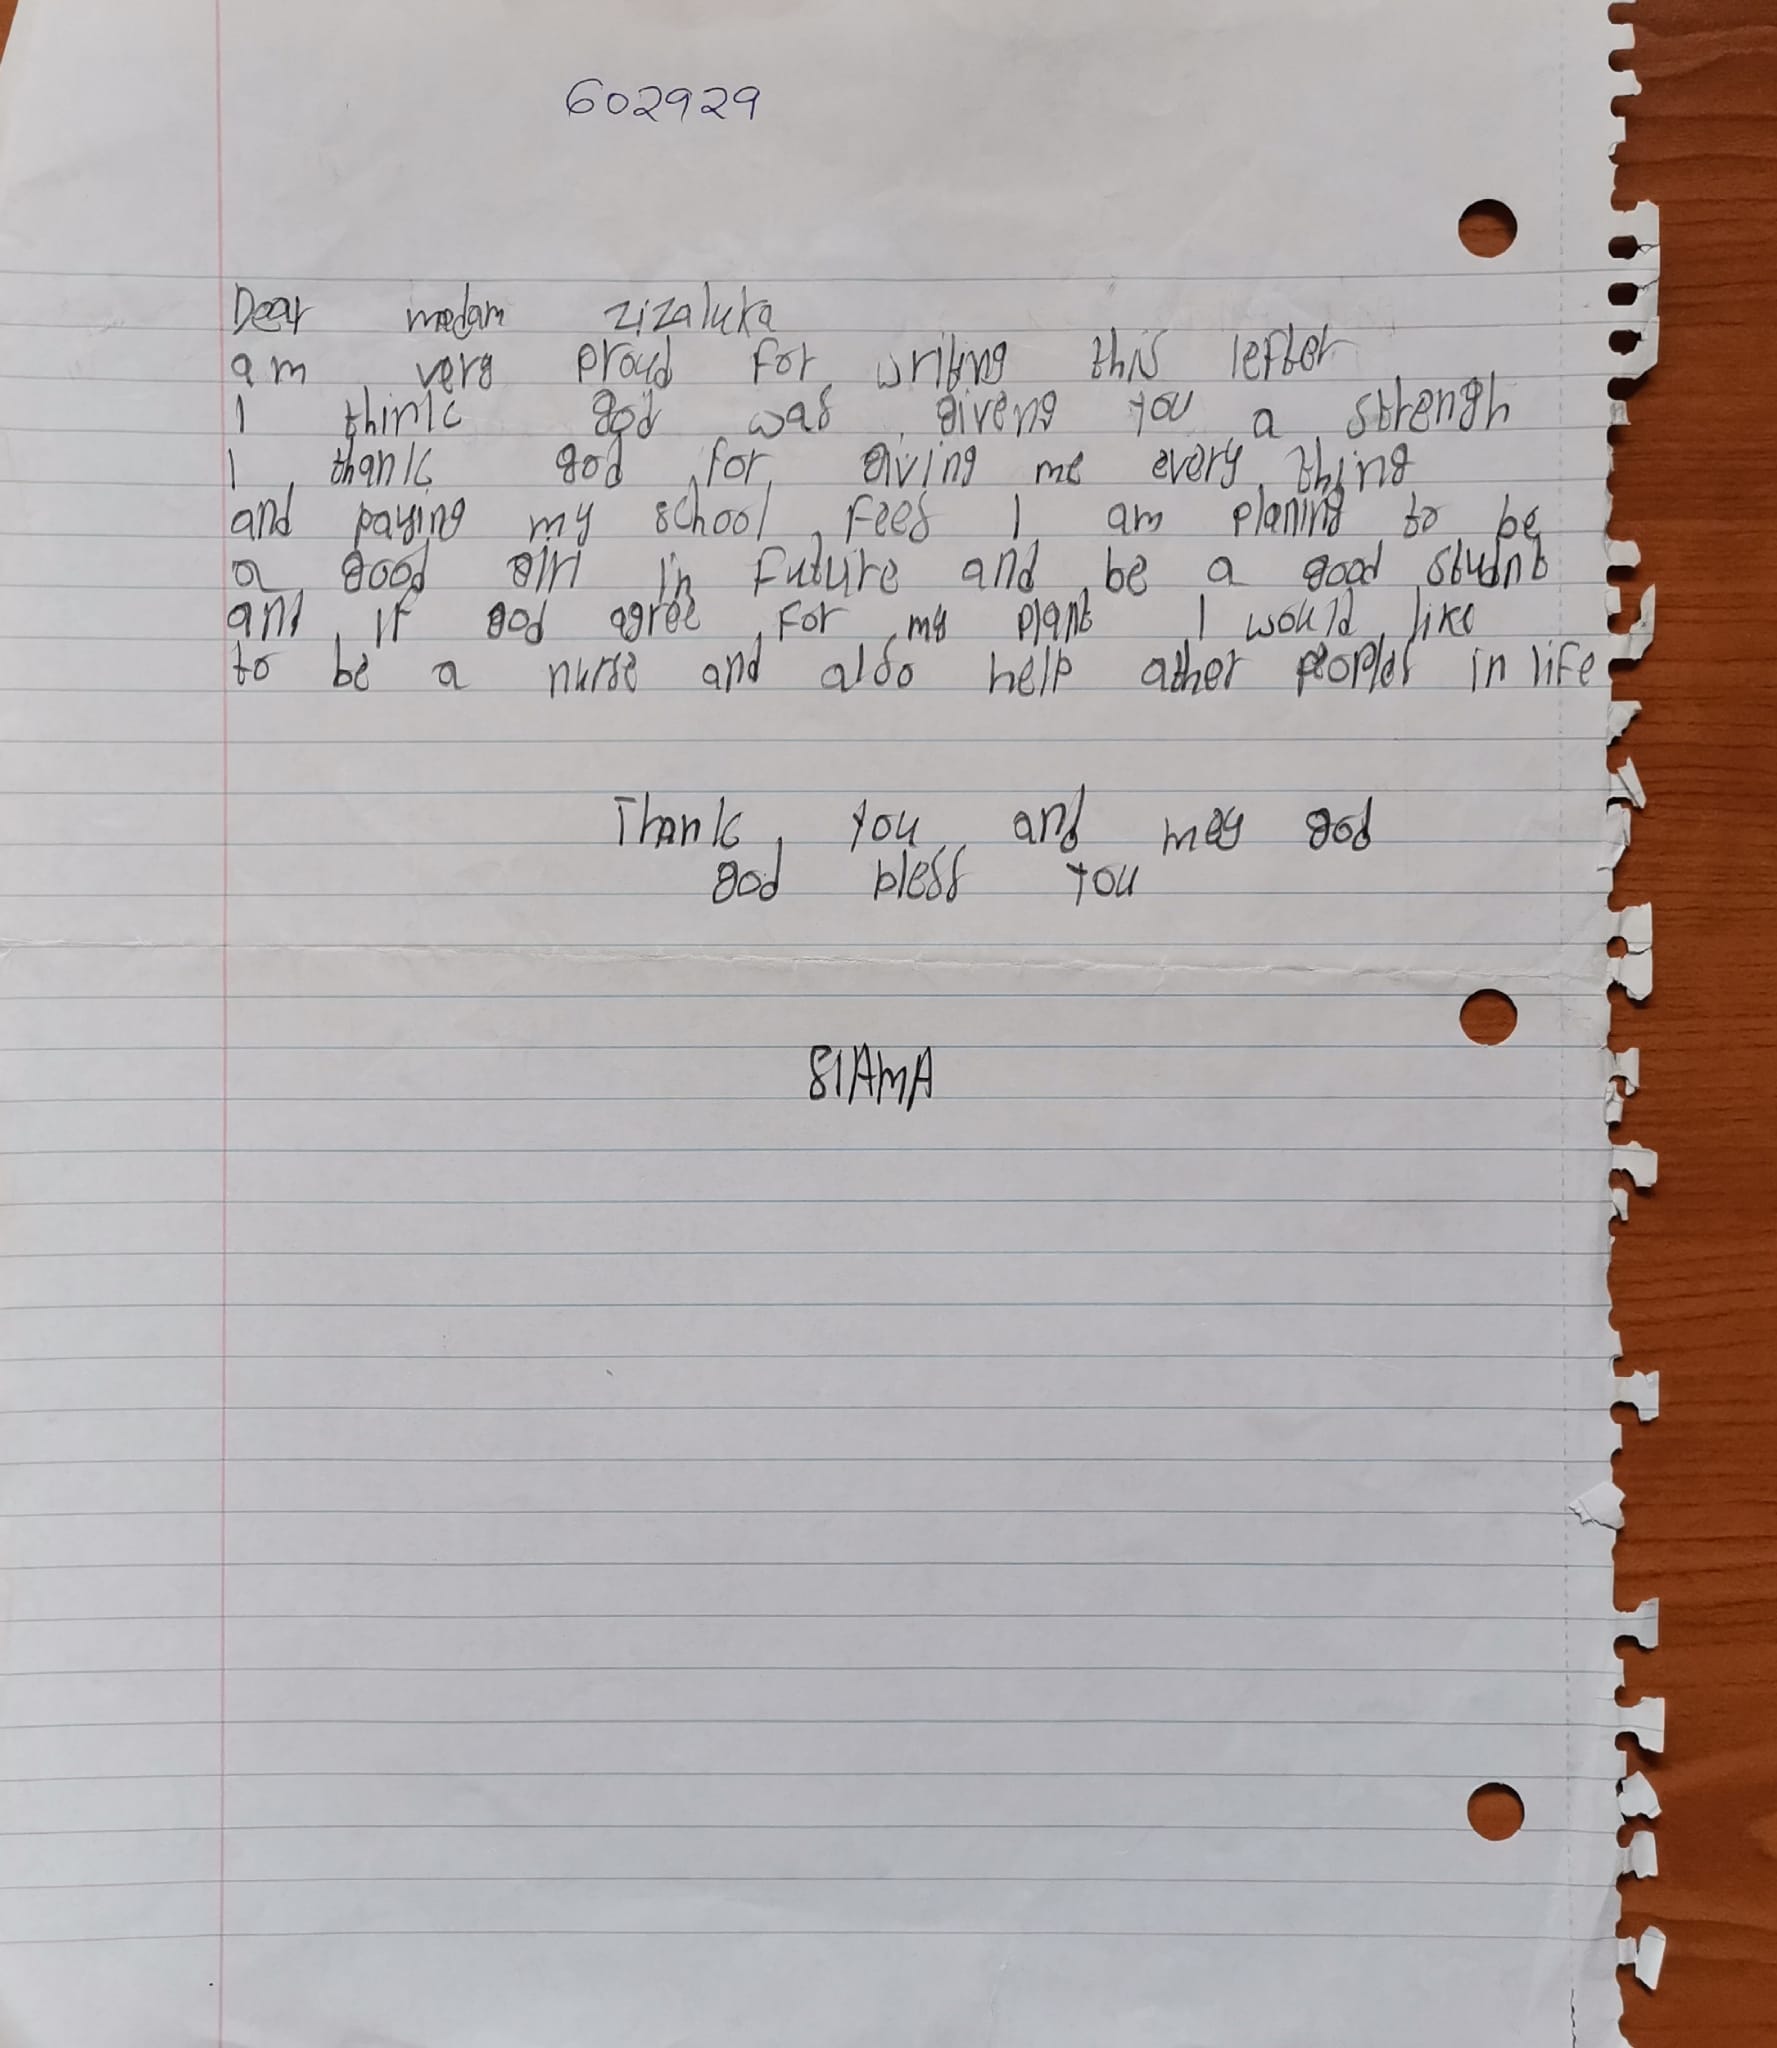 602929
Dear medam zizaluka
am very proud for writing this letter
I think god was giveng you a strengh
I thank god for giving me every thing
and paying my school fees I am planing to be
a good girl in future and be a good studnt
and if god agree for my plant I would like
to be a nurse and also help ather peoples in life
Thank you and may god
god bless you
SIAMA